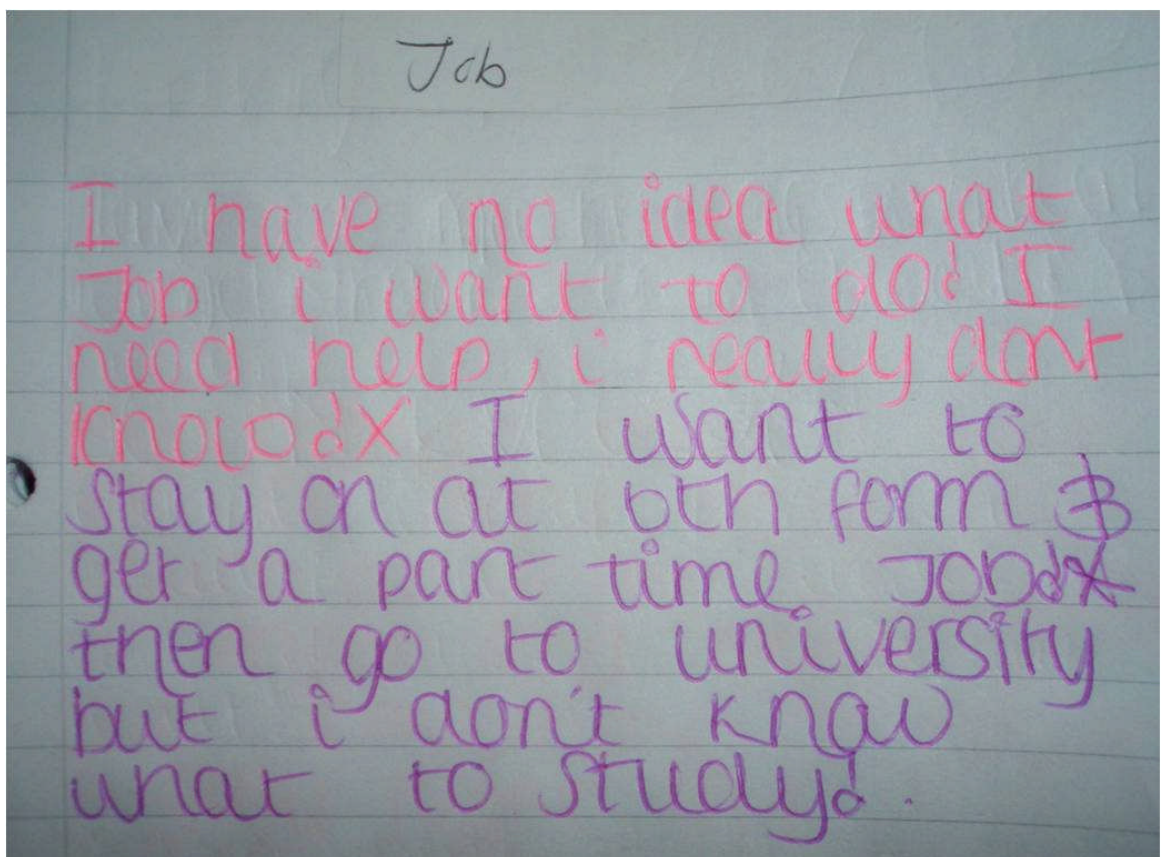 Job
I have no idea what
Job i want to do! I
need help, i really dont
know!X I want to
stay on at 6th form &
get a part time Job!X
then go to university
but i don't know
what to study! .